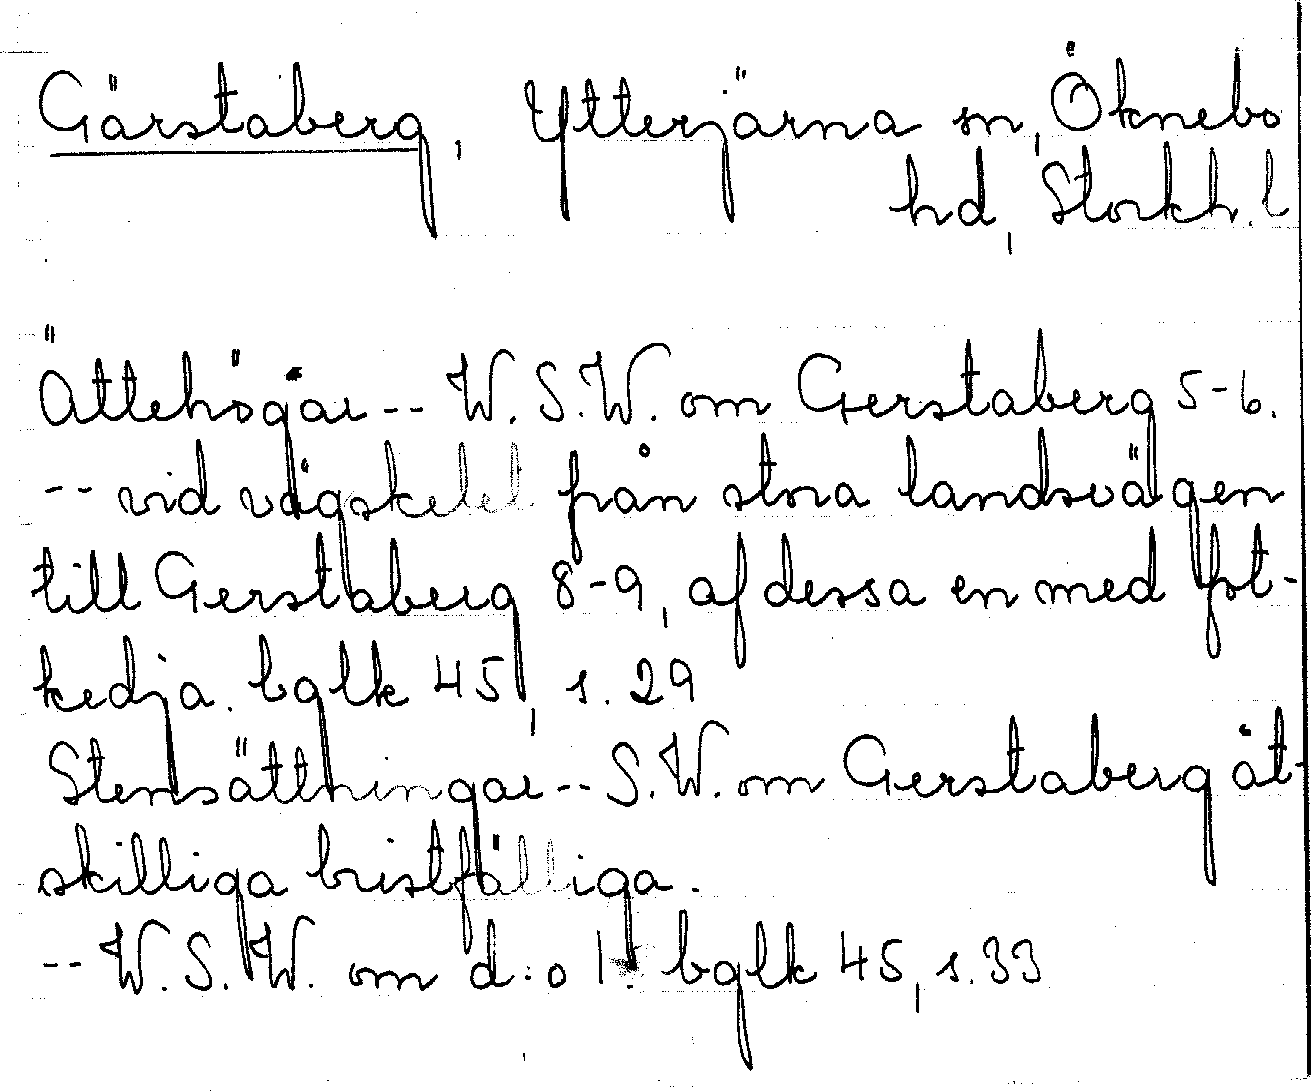 Gärstaberg, Ytterjärna sn, Öknebo
hd, Stockh. l
Ättehögar -- W. S. W. om Gerstaberg 5-6.
-- vid vägskelet från stora landsvägen
till Gerstaberg 8-9, af dessa en med fot-
kedja. bglk 45, s. 29
Stensättningar -- S. W. om Gerstaberg åt-
skilliga bristfälliga.
-- W. S. W. om d:o 1. bglk 45, s. 33